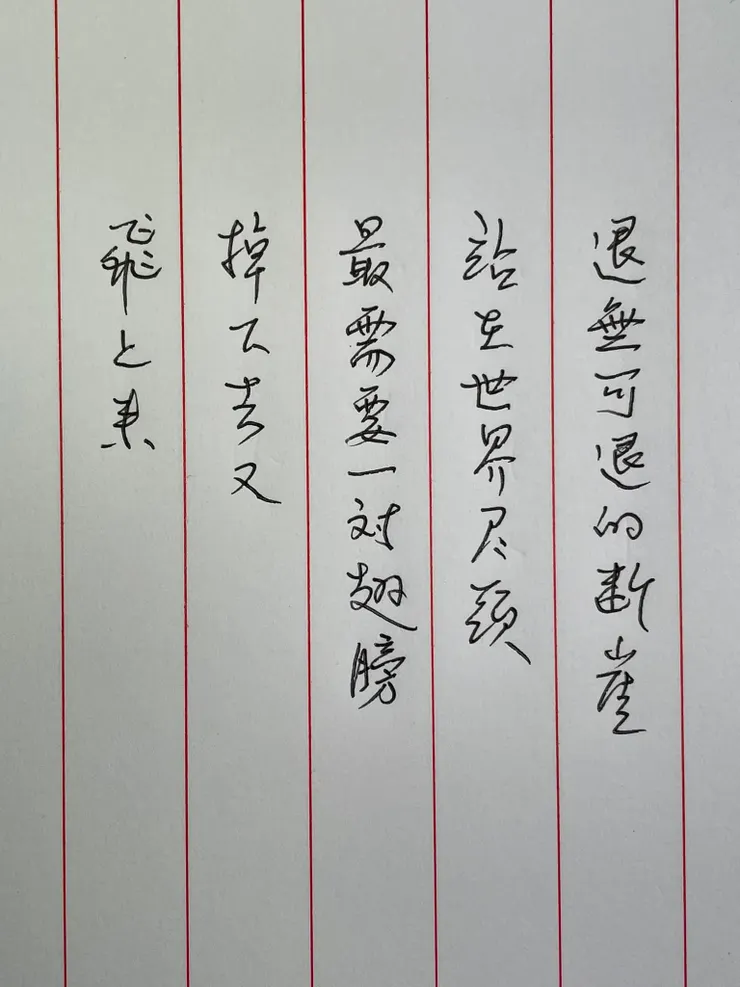 退無可退的断崖
站在世界尽頭
最需要一对翅膀
掉下去又
飛上来